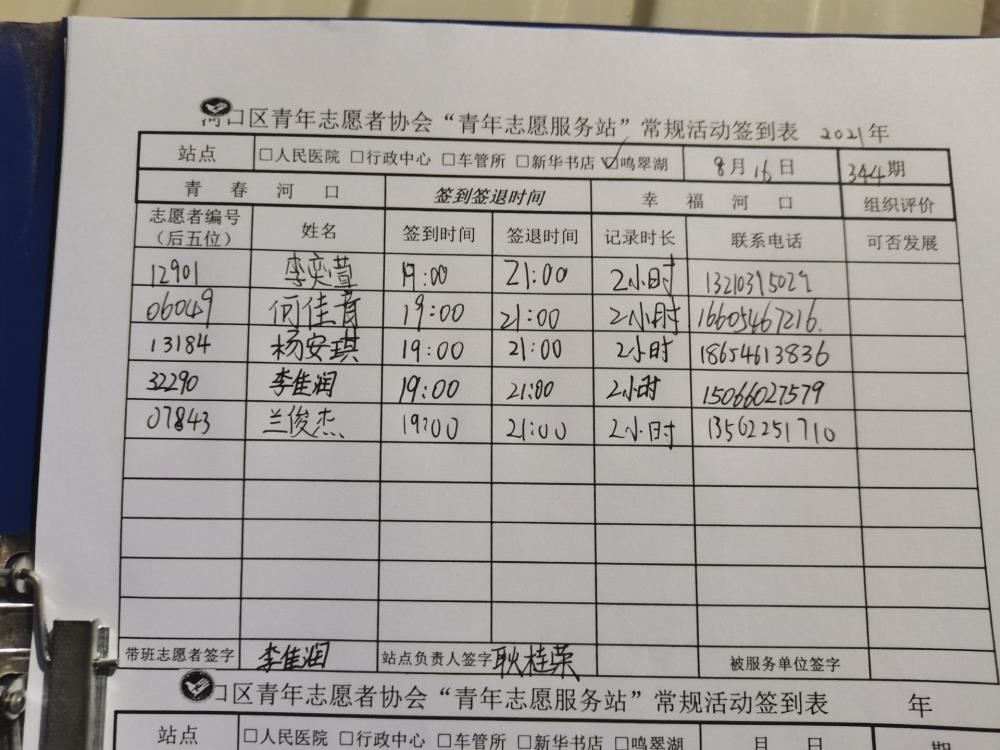 河口区青年志愿者协会“青年志愿服务站”常规活动签到表 2021年
站点 □人民医院 □行政中心 □车管所 □新华书店 ☑鸣翠湖 8月16日 344期
青春河口 签到签退时间 幸福河口 组织评价
志愿者编号（后五位） 姓名 签到时间 签退时间 记录时长 联系电话 可否发展
12901 李奕萱 19:00 21:00 2小时
06049 何佳 19:00 21:00 2小时 16605467216.
13184 杨安琪 19:00 21:00 2小时 18654613836
32290 李佳润 19:00 21:00 2小时 15066027579
07843 兰俊杰 19:00 21:00 2小时 13562251710
带班志愿者签字 李佳润 站点负责人签字 耿桂荣 被服务单位签字
口区青年志愿者协会“青年志愿服务站”常规活动签到表 年
站点 □人民医院 □行政中心 □车管所 □新华书店 □鸣翠湖 月 日 期